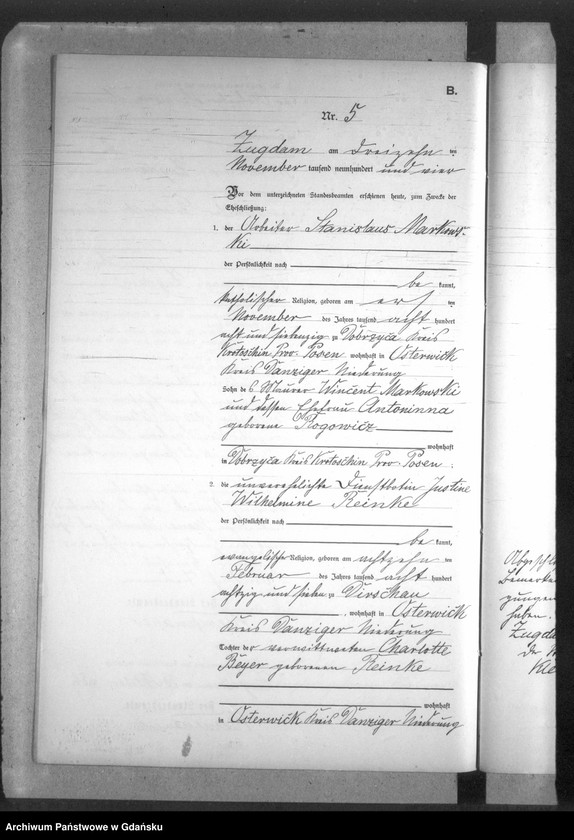 B.
Nr. 5
Zugdam am dreizehn ten
November tausend neunhundert und vier
Vor dem unterzeichneten Standesbeamten erschienen heute, zum Zwecke der
Eheschließung:
1. der Arbeiter Stanislaus Markows-
ki
der Persönlichkeit nach
be kannt,
katholischer Religion, geboren am ers ten
November des Jahres tausend acht hundert
acht und siebenzig zu Dobrzyca Kreis
Krotoschin Prov. Posen wohnhaft in Osterwick
Kreis Danziger Niederung
Sohn des Maurer Wincent Markowski
und dessen Ehefrau Antoninna
geborene Rogowicz
wohnhaft
in Dobrzyca Kreis Krotoschin Prov. Posen.
2. die unverehelichte Dienstbotin Justine
Wilhelmine Reinke
der Persönlichkeit nach
be kannt,
evangelische Religion, geboren am achtzehn ten
Februar des Jahres tausend acht hundert
achtzig und sieben zu Dirschau
, wohnhaft in Osterwick
Kreis Danziger Niederung
Tochter der verwittweten Charlotte
Beyer geborenen Reinke
wohnhaft
in Osterwick Kreis Danziger Niederung
gungen
haben.
Zugda
Archiwum Państwowe w Gdańsku